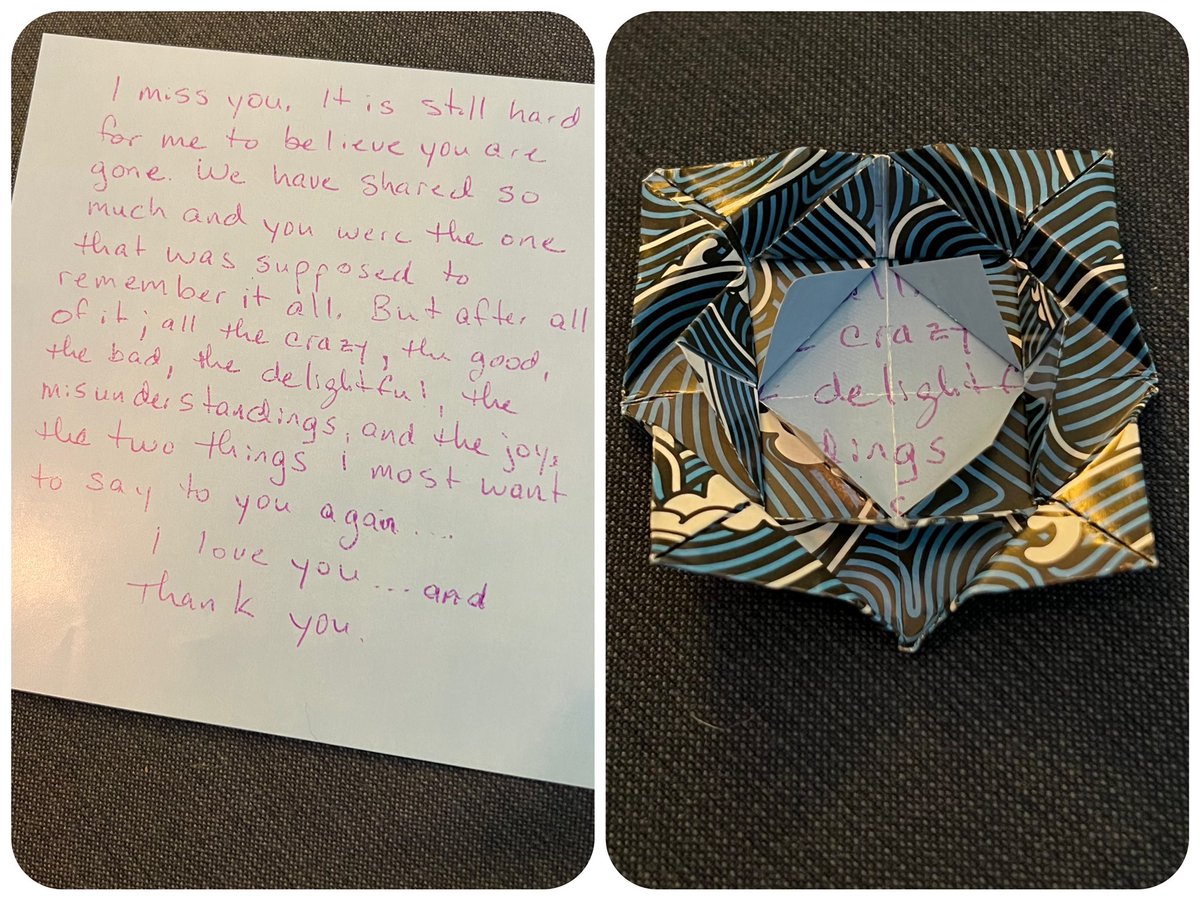 I miss you. It is still hard
for me to believe you are
gone. We have shared so
much and you were the one
that was supposed to
remember it all. But after all
of it; all the crazy, the good,
the bad, the delightful, the
misunderstandings, and the joys
the two things i most want
to say to you again....
I love you...and
Thank you.
all.
crazy
delightf
dings
s